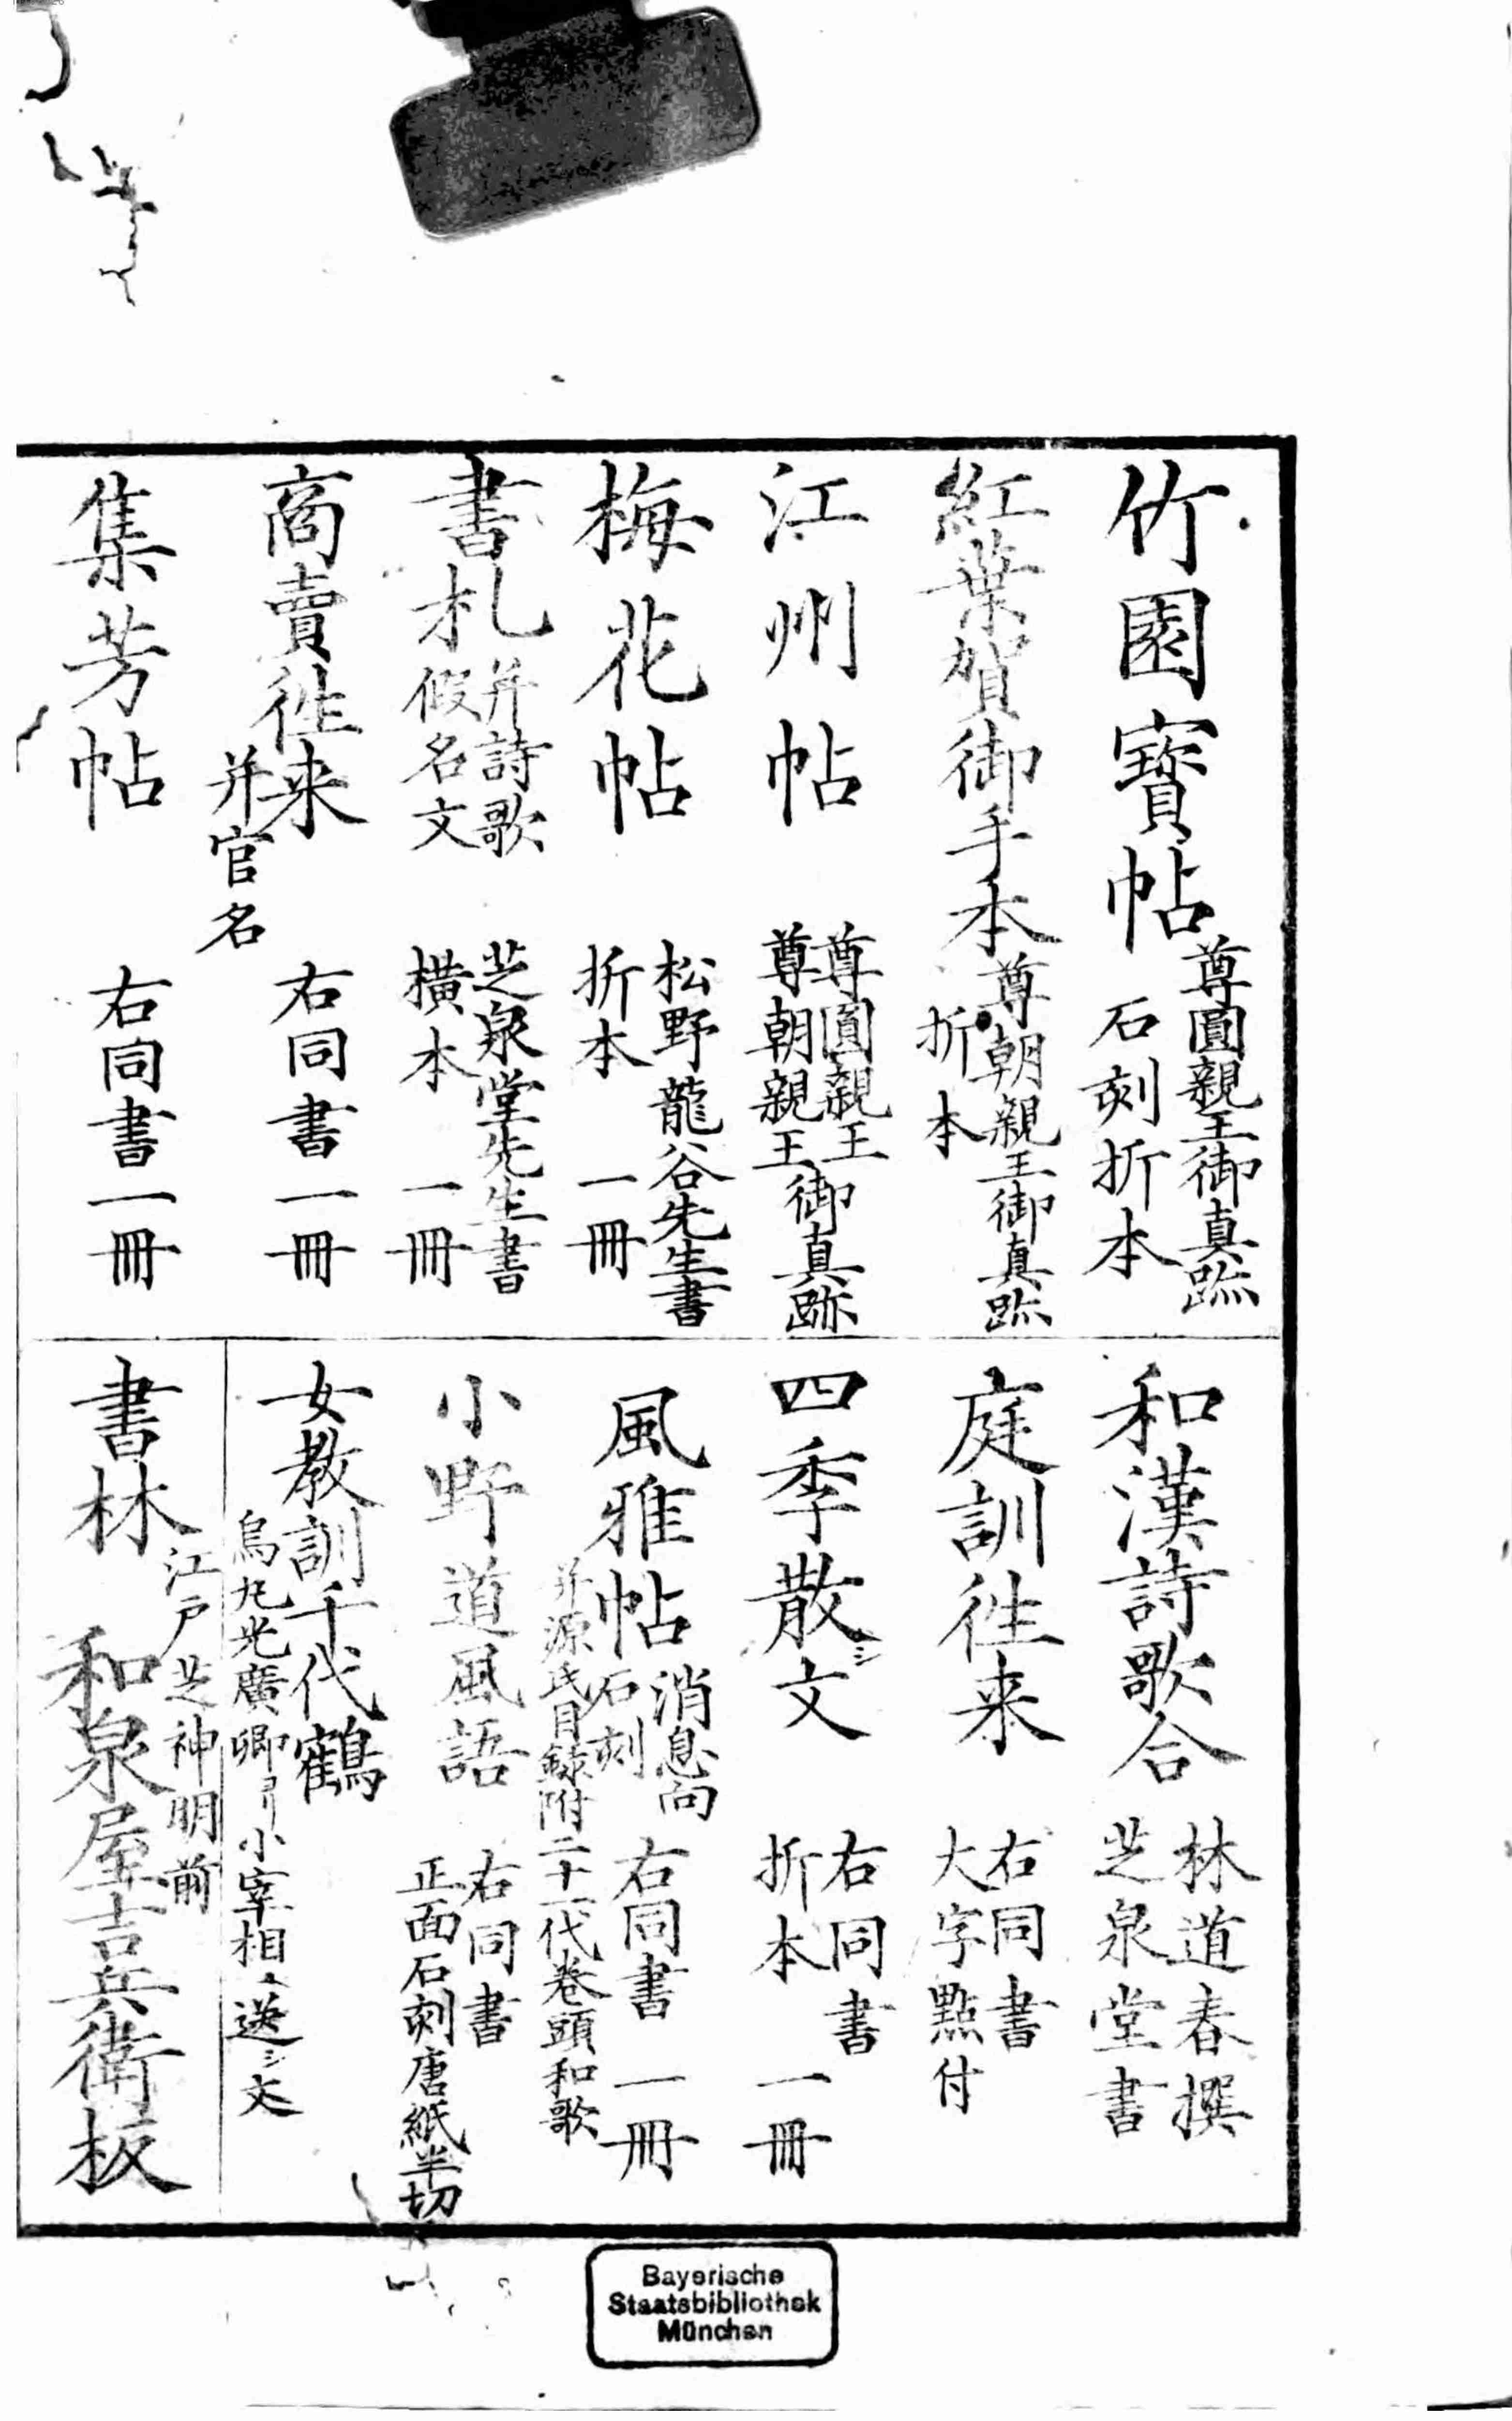 竹園寳帖
尊圓親王御真跡
石刻折本
紅葉賀御手本
尊朝親王御真跡
折本
江州帖
尊圓親王
尊朝親王御真跡
梅花帖
松野龍谷先生書
折本 一冊
書札
并詩歌
假名文
芝泉堂先生書
横本 一冊
商賣徃来
并官名
右同書 一冊
集芳帖
右同書 一冊
和漢詩歌合
林道春撰
芝泉堂書
庭訓徃来
右同書
大字點付
四季散シ文
右同書
折本 一冊
風雅帖
消息向
石刻
右同書 一冊
并源氏目録附二十一代巻頭和歌
小野道風語
右同書
正面石刻唐紙半切
女教訓千代鶴
烏丸光廣卿ヨリ小宰相ヘ送シ文
江戸芝神明前
書林 和泉屋吉兵衛板
Bayerische
Staatsbibliothek
München